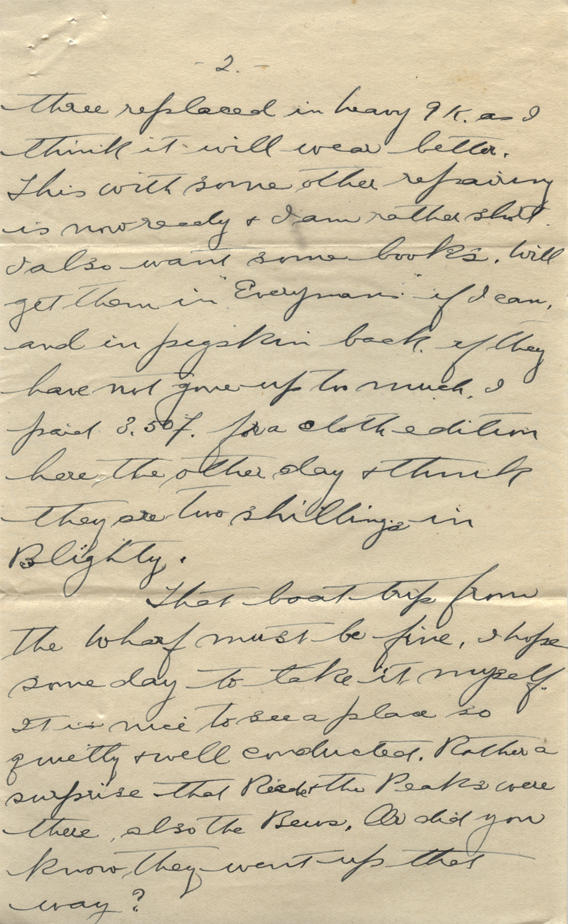 - 2. -
three replaced in heavy 9 K. as I
think it will wear better.
This with some other repairing
is now ready & I am rather short.
I also want some books. Will
get them in "Everyman" if I can,
and in pigskin back. if they
have not gone up too much. I
paid 3.50 f. for a cloth edition
here the other day & think
they are two shillings in
Blighty.
That boat trip from
the wharf must be fine, I hope
some day to take it myself.
It is nice to see a place so
quietly & well conducted. Rather a
surprise that & the Peaks were
there, also the Bews. Or did you
know, they went up that
way?